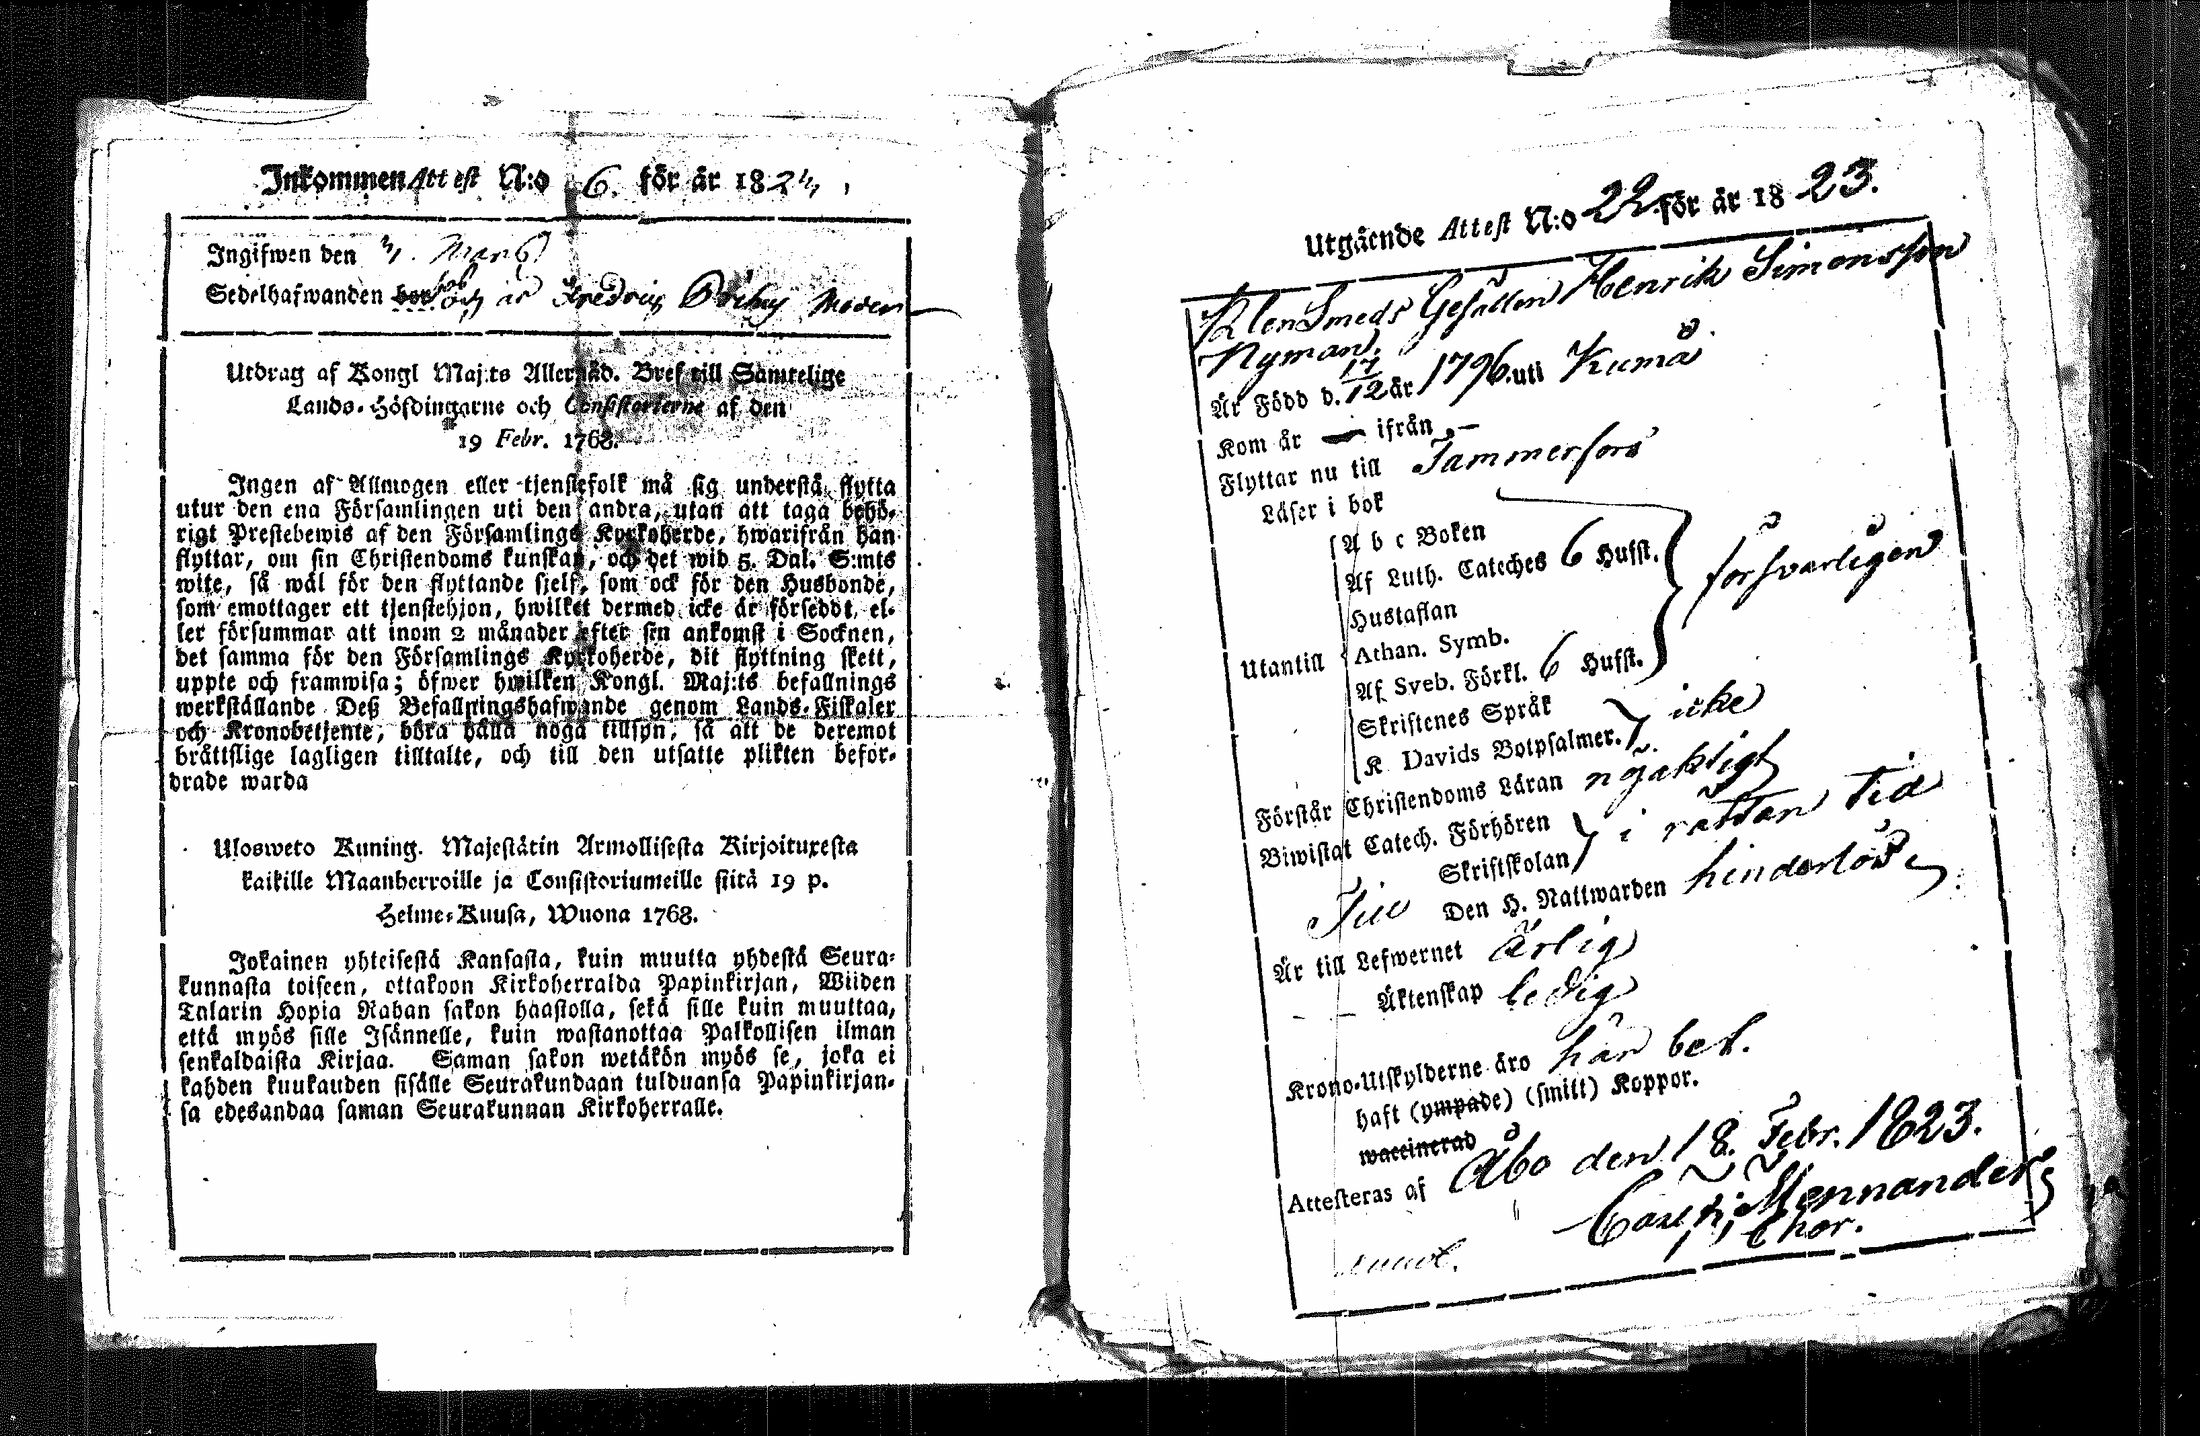 Inkommen Attest N:o 6. för år 1824,
Ingifwen den 4/1. Mars
Sedelhafwanden är Fredric
Utdrag af Kongl Maj:ts Allernåd. Bref till Samtelige
Lands-Höfdingarne och Consistorierne af den
19 Febr. 1768.
Ingen af Allmogen eller tjenstefolk må sig understå flytta
utur den ena Församlingen uti den andra, utan att taga behö-
rigt Prestebewis af den Församlings Kyrkoherde, hwarifrån han
flyttar, om sin Christendoms kunskap, och det wid 5. Dal. S:mts
wite, så wäl för den flyttande sjelf, som ock för den Husbonde,
som emottager ett tjenstehjon, hwilket dermed icke är förseddt, el-
ler försummar att inom 2 månader efter sin ankomst i Socknen,
det samma för den Församlings Kyrkoherde, dit flyttning skett,
uppte och framwisa; öfwer hwilken Kongl. Maj:ts befallnings
werkställande Deß Befallningshafwande genom Lands-Fiskaler
och Kronobetjente, böra hålla noga tillsyn, så att de deremot
bråttslige lagligen tilltalte, och till den utsatte plikten befor-
drade warda
Ulosweto Kuning. Majestätin Armollisesta Kirjoituxesta
kaikille Maanherroille ja Consistoriumeille siitä 19 p.
Helme-Kuusa, Wuona 1768.
Jokainen yhteisestä Kansasta, kuin muutta yhdestä Seura-
kunnasta toiseen, ottakoon Kirkoherralda Papinkirjan, Wiiden
Talarin Hopia Rahan sakon haastolla, sekä sille kuin muuttaa,
että myös sille Isännelle, kuin wastanottaa Palkollisen ilman
senkaldaista Kirjaa. Saman sakon wetäkön myös se, joka ei
kahden kuukauden sisälle Seurakundaan tulduansa Papinkirjan-
sa edesandaa saman Seurakunnan Kirkoherralle.
Utgående Attest N:o 22 för år 1823.
KlenSmeds Gesällen Henrik Simonsson
Nyman.
Är Född d. 17/12 år 1796. uti Kumå
Kom år — ifrån —
Flyttar nu till Tammerfors
Läser i bok
A b c Boken
Af Luth. Cateches 6 Hufst.
försvarligen
Hustaflan
Utantill Athan. Symb.
Af Sveb. Förkl. 6 Hufst.
Skriftenes Språk
icke
K Davids Botpsalmer.
Förstår Christendoms Läran nöjaktigt
Biwistat Catech. Förhören
i rättan tid
Skriftskolan
Till Den H. Nattwarden hinderlös
Är till Lefwernet ärlig
Äktenskap ledig
Krono-Utskylderne äro här bet.
haft (ympade) (smitt) Koppor.
waccinerad
Attesteras af Åbo den 18. Febr. 1823.
Mennander